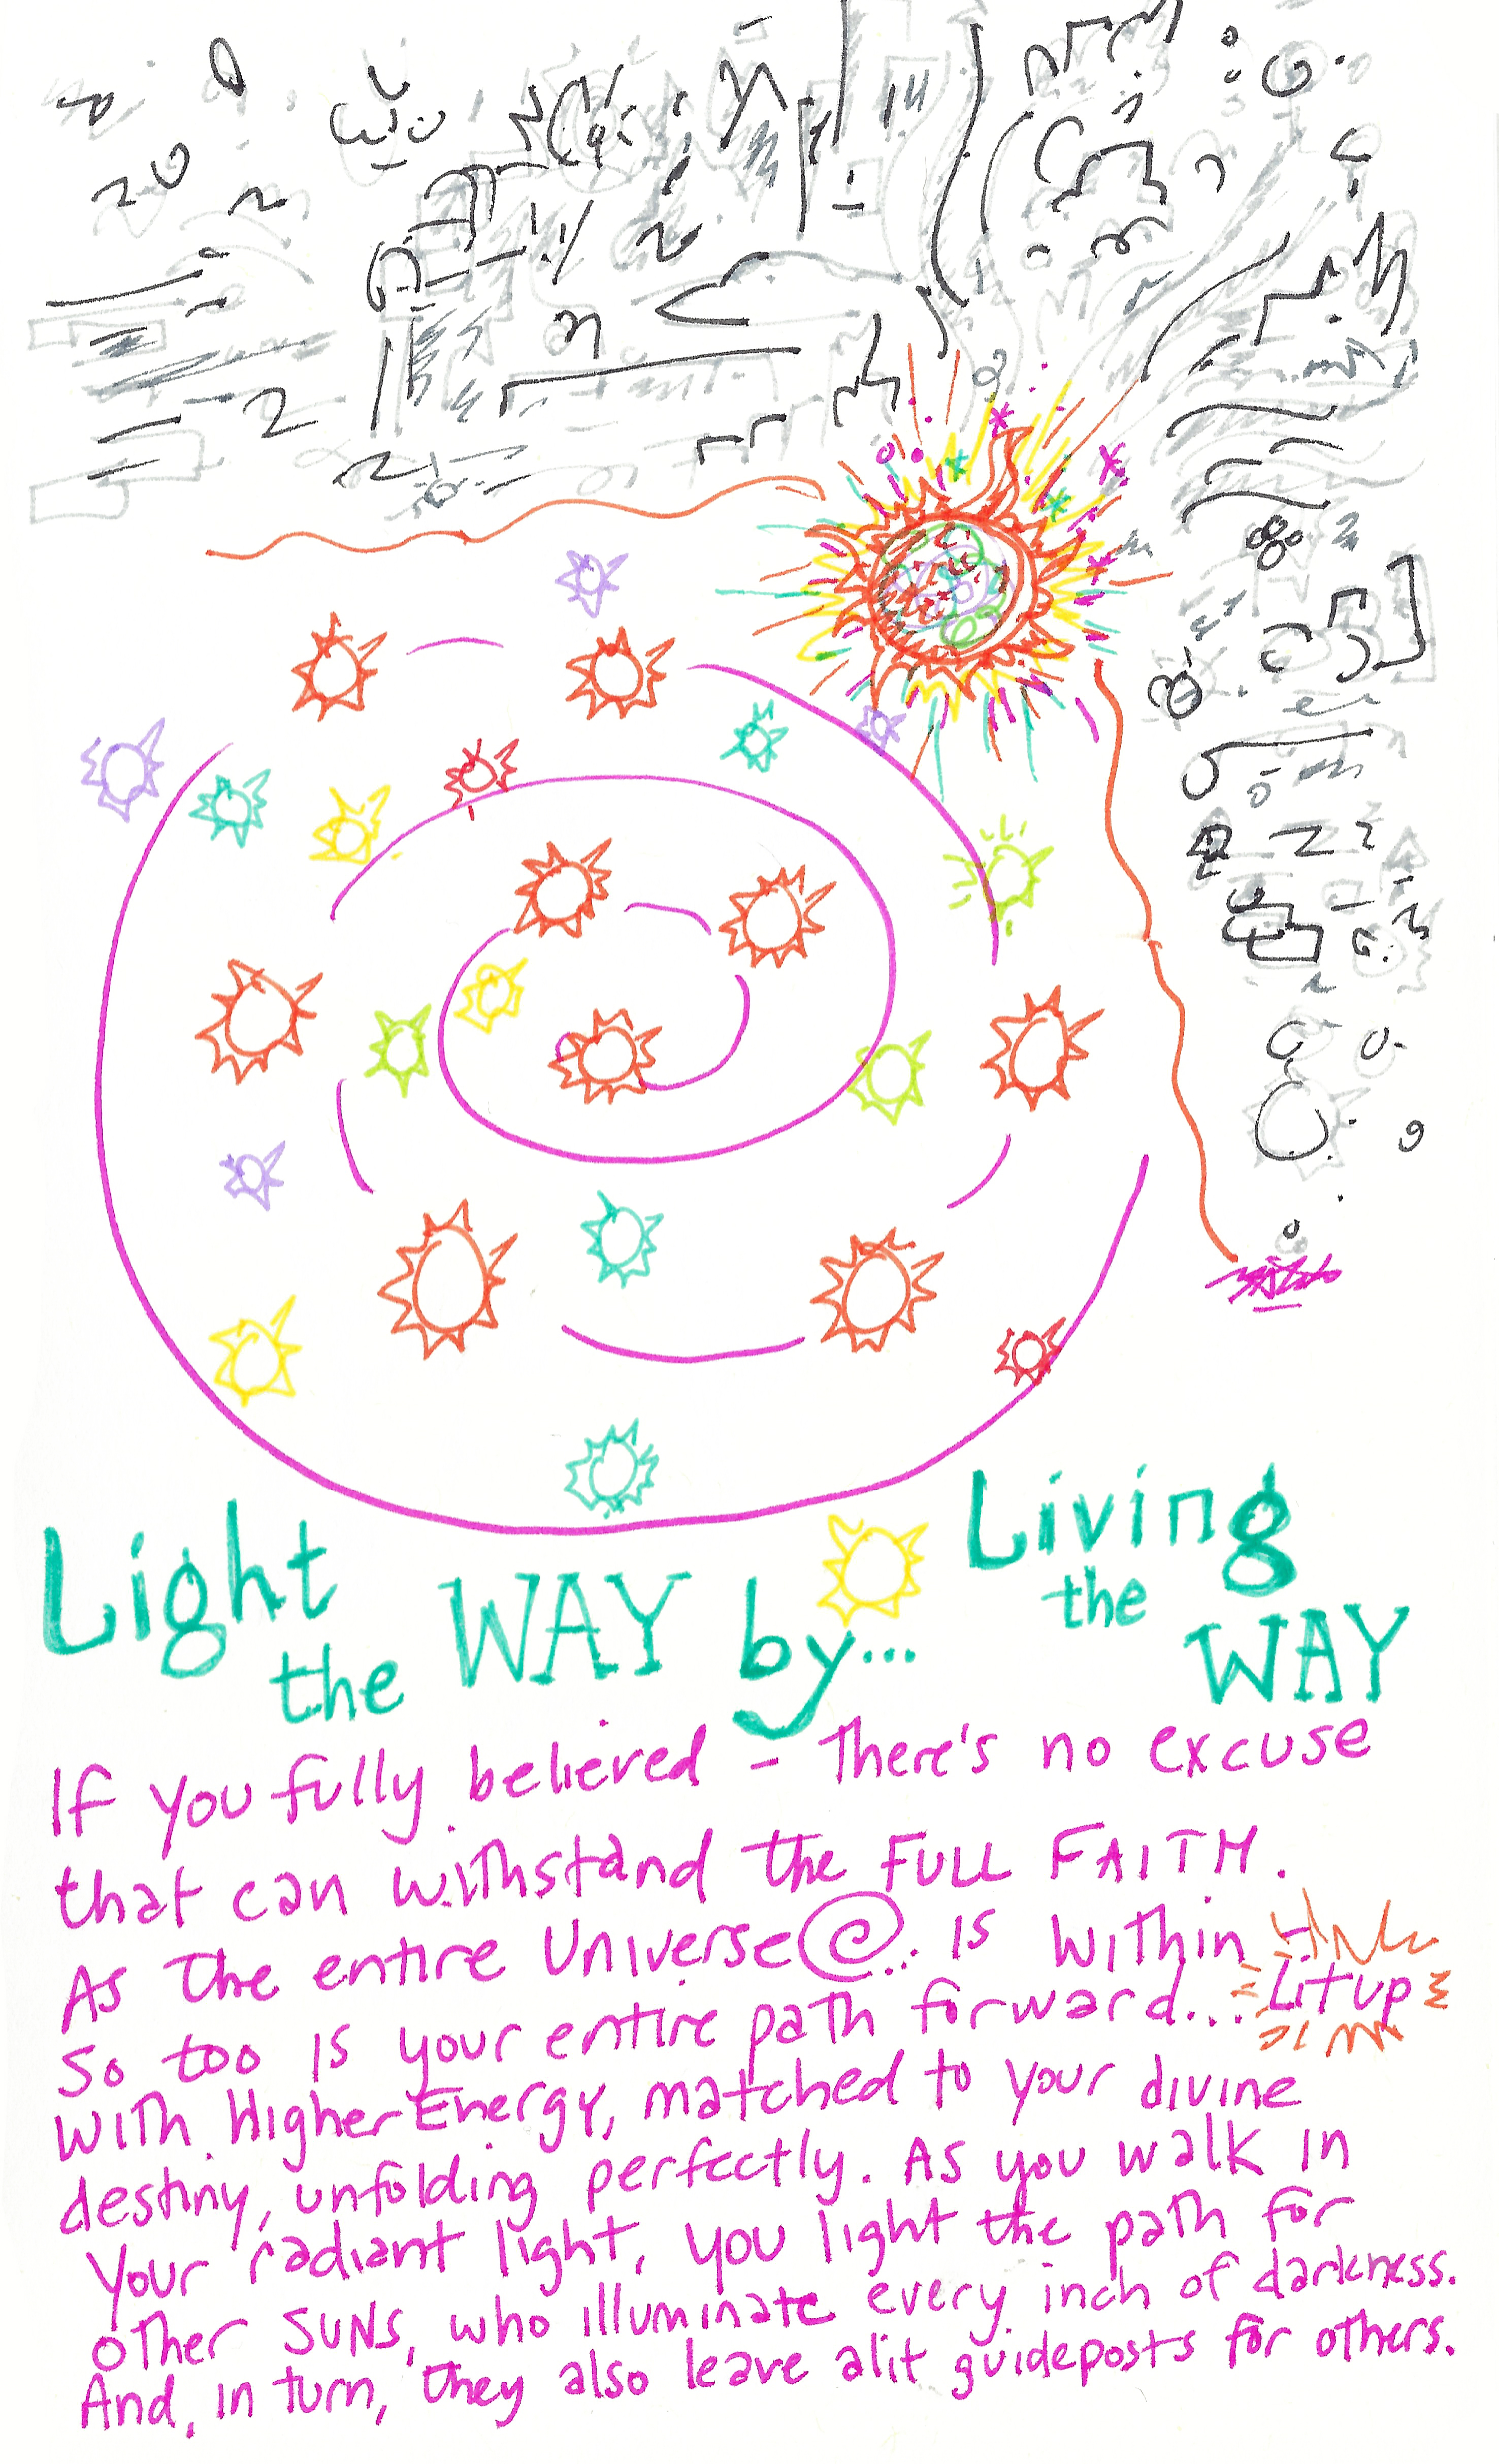 Light the WAY by... Living the WAY
If you fully believed - There's no excuse
that can withstand the FULL FAITH.
As the entire Universe is within
So too is your entire path forward... Lit up
With Higher Energy, matched to your divine
destiny, unfolding perfectly. As you walk in
Your radiant light, you light the path for
other SUNs, who illuminate every inch of darkness.
And, in turn, they also leave alit guideposts for others.